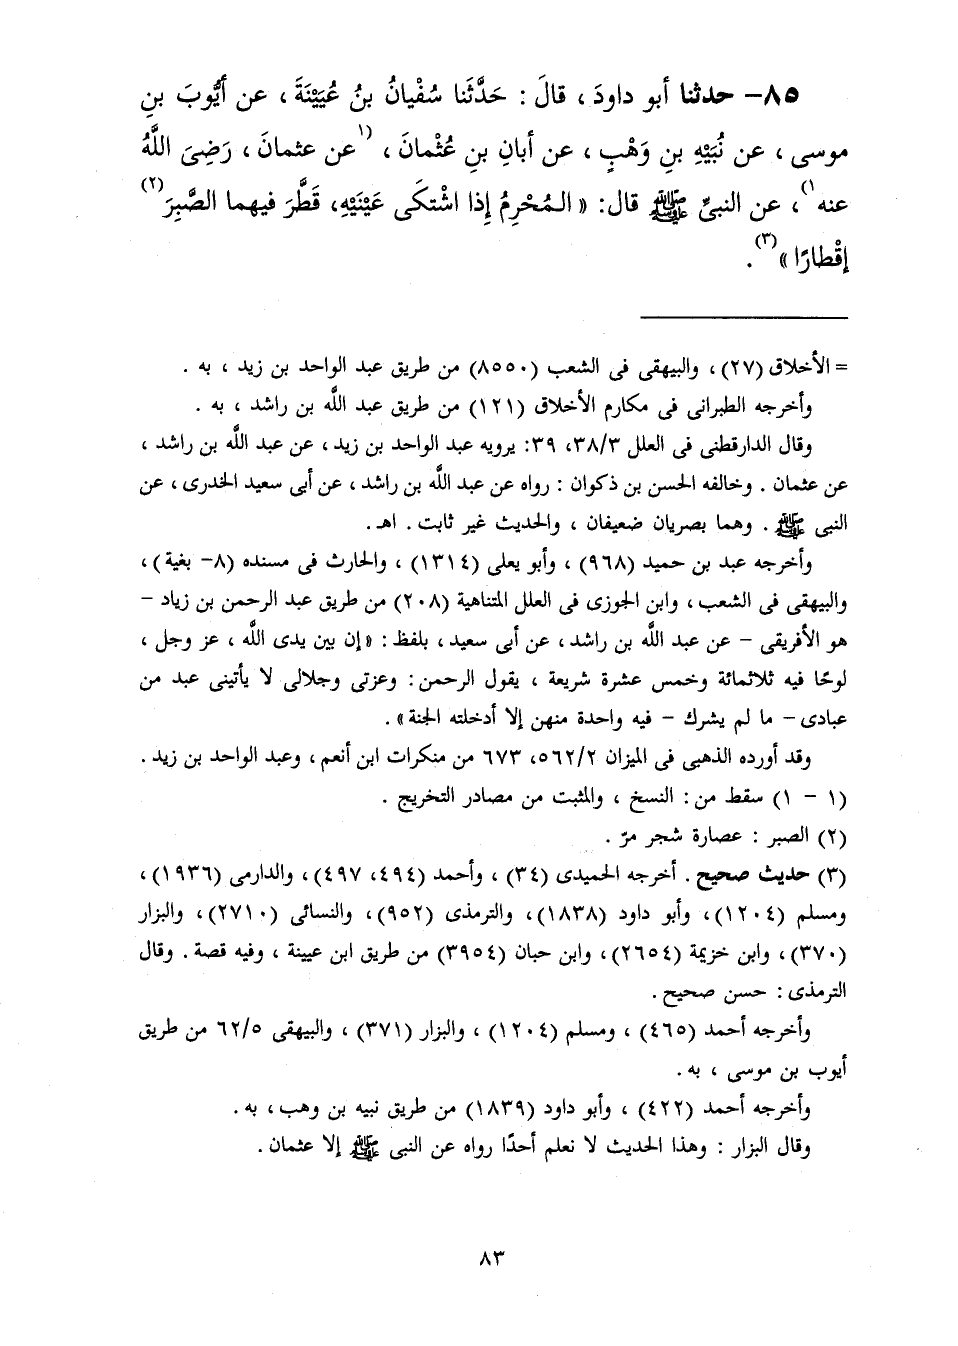 ٨٥- حدثنا أبو داودَ ، قالَ : حَدَّثَنا سُفْيانُ بنُ عُيَيْنَةَ ، عن أيُّوبَ بنِ
موسى ، عن نُبَيْهِ بنِ وَهْبٍ ، عن أبانِ بنِ عُثْمانَ ، (١عن عثمانَ ، رَضِىَ اللَّهُ
عنه١)، عن النبىِّ ﷺ قال: « المُحْرِمُ إذا اشْتكَى عَيْنَيْهِ، قَطَّرَ فيهما الصَّبِرَ(٢)
إقْطارًا »(٣) .
= الأخلاق (٢٧) ، والبيهقى فى الشعب (٨٥٥٠) من طريق عبد الواحد بن زيد ، به .
وأخرجه الطبرانى فى مكارم الأخلاق (١٢١) من طريق عبد اللَّه بن راشد ، به .
وقال الدارقطنى فى العلل ٣٨/٣، ٣٩: يرويه عبد الواحد بن زيد، عن عبد اللَّه بن راشد ،
عن عثمان . وخالفه الحسن بن ذكوان : رواه عن عبد اللَّه بن راشد ، عن أبى سعيد الخدرى ، عن
النبى ﷺ . وهما بصريان ضعيفان ، والحديث غير ثابت . اهـ.
وأخرجه عبد بن حميد (٩٦٨) ، وأبو يعلى (١٣١٤) ، والحارث فى مسنده (٨- بغية) ،
والبيهقى فى الشعب ، وابن الجوزى فى العلل المتناهية (٢٠٨) من طريق عبد الرحمن بن زياد -
هو الأفريقى - عن عبد اللَّه بن راشد ، عن أبى سعيد ، بلفظ : «إن بين يدى اللَّه ، عز وجل ،
لوحًا فيه ثلاثمائة وخمس عشرة شريعة ، يقول الرحمن : وعزتى وجلالى لا يأتينى عبد من
عبادى - ما لم يشرك - فيه واحدة منهن إلا أدخلته الجنة» .
وقد أورده الذهبى فى الميزان ٥٦٢/٢، ٦٧٣ من منكرات ابن أنعم ، وعبد الواحد بن زيد .
(١ - ١) سقط من : النسخ ، والمثبت من مصادر التخريج .
(٢) الصبر : عصارة شجر مرّ .
(٣) حديث صحيح . أخرجه الحميدى (٣٤) ، وأحمد (٤٩٤، ٤٩٧)، والدارمى (١٩٣٦) ،
ومسلم (١٢٠٤)، وأبو داود (١٨٣٨)، والترمذى (٩٥٢)، والنسائى (٢٧١٠)، والبزار
(٣٧٠)، وابن خزيمة (٢٦٥٤)، وابن حبان (٣٩٥٤) من طريق ابن عيينة ، وفيه قصة . وقال
الترمذى : حسن صحيح .
وأخرجه أحمد (٤٦٥) ، ومسلم (١٢٠٤) ، والبزار (٣٧١) ، والبيهقى ٦٢/٥ من طريق
أيوب بن موسى ، به .
وأخرجه أحمد (٤٢٢) ، وأبو داود (١٨٣٩) من طريق نبيه بن وهب ، به .
وقال البزار : وهذا الحديث لا نعلم أحدًا رواه عن النبى ﷺ إلا عثمان .
٨٣